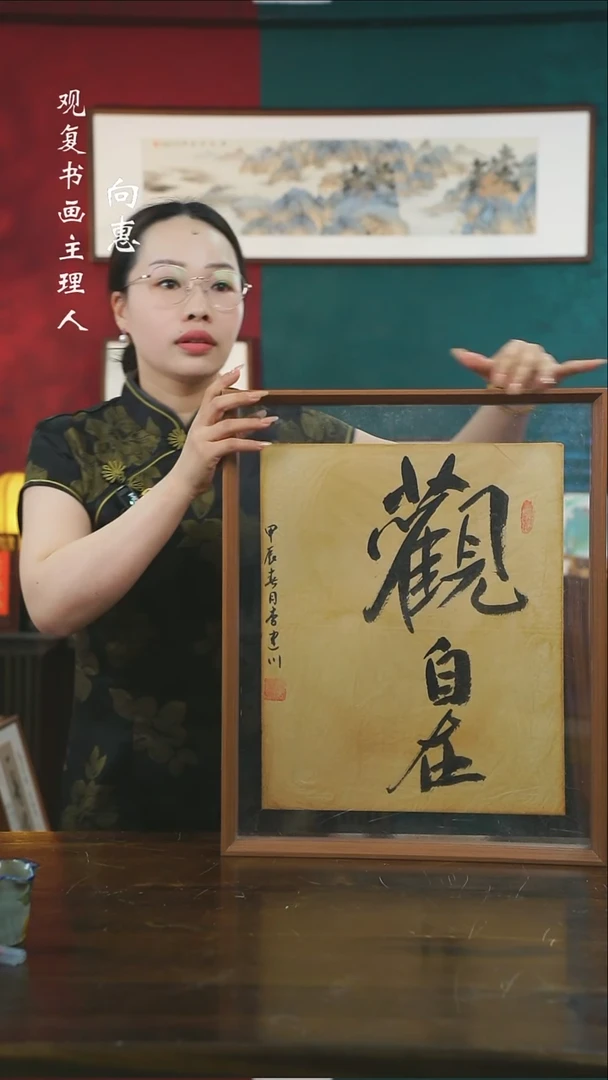 观复书画主理人
向惠
觀
自
在
甲辰春月李建川